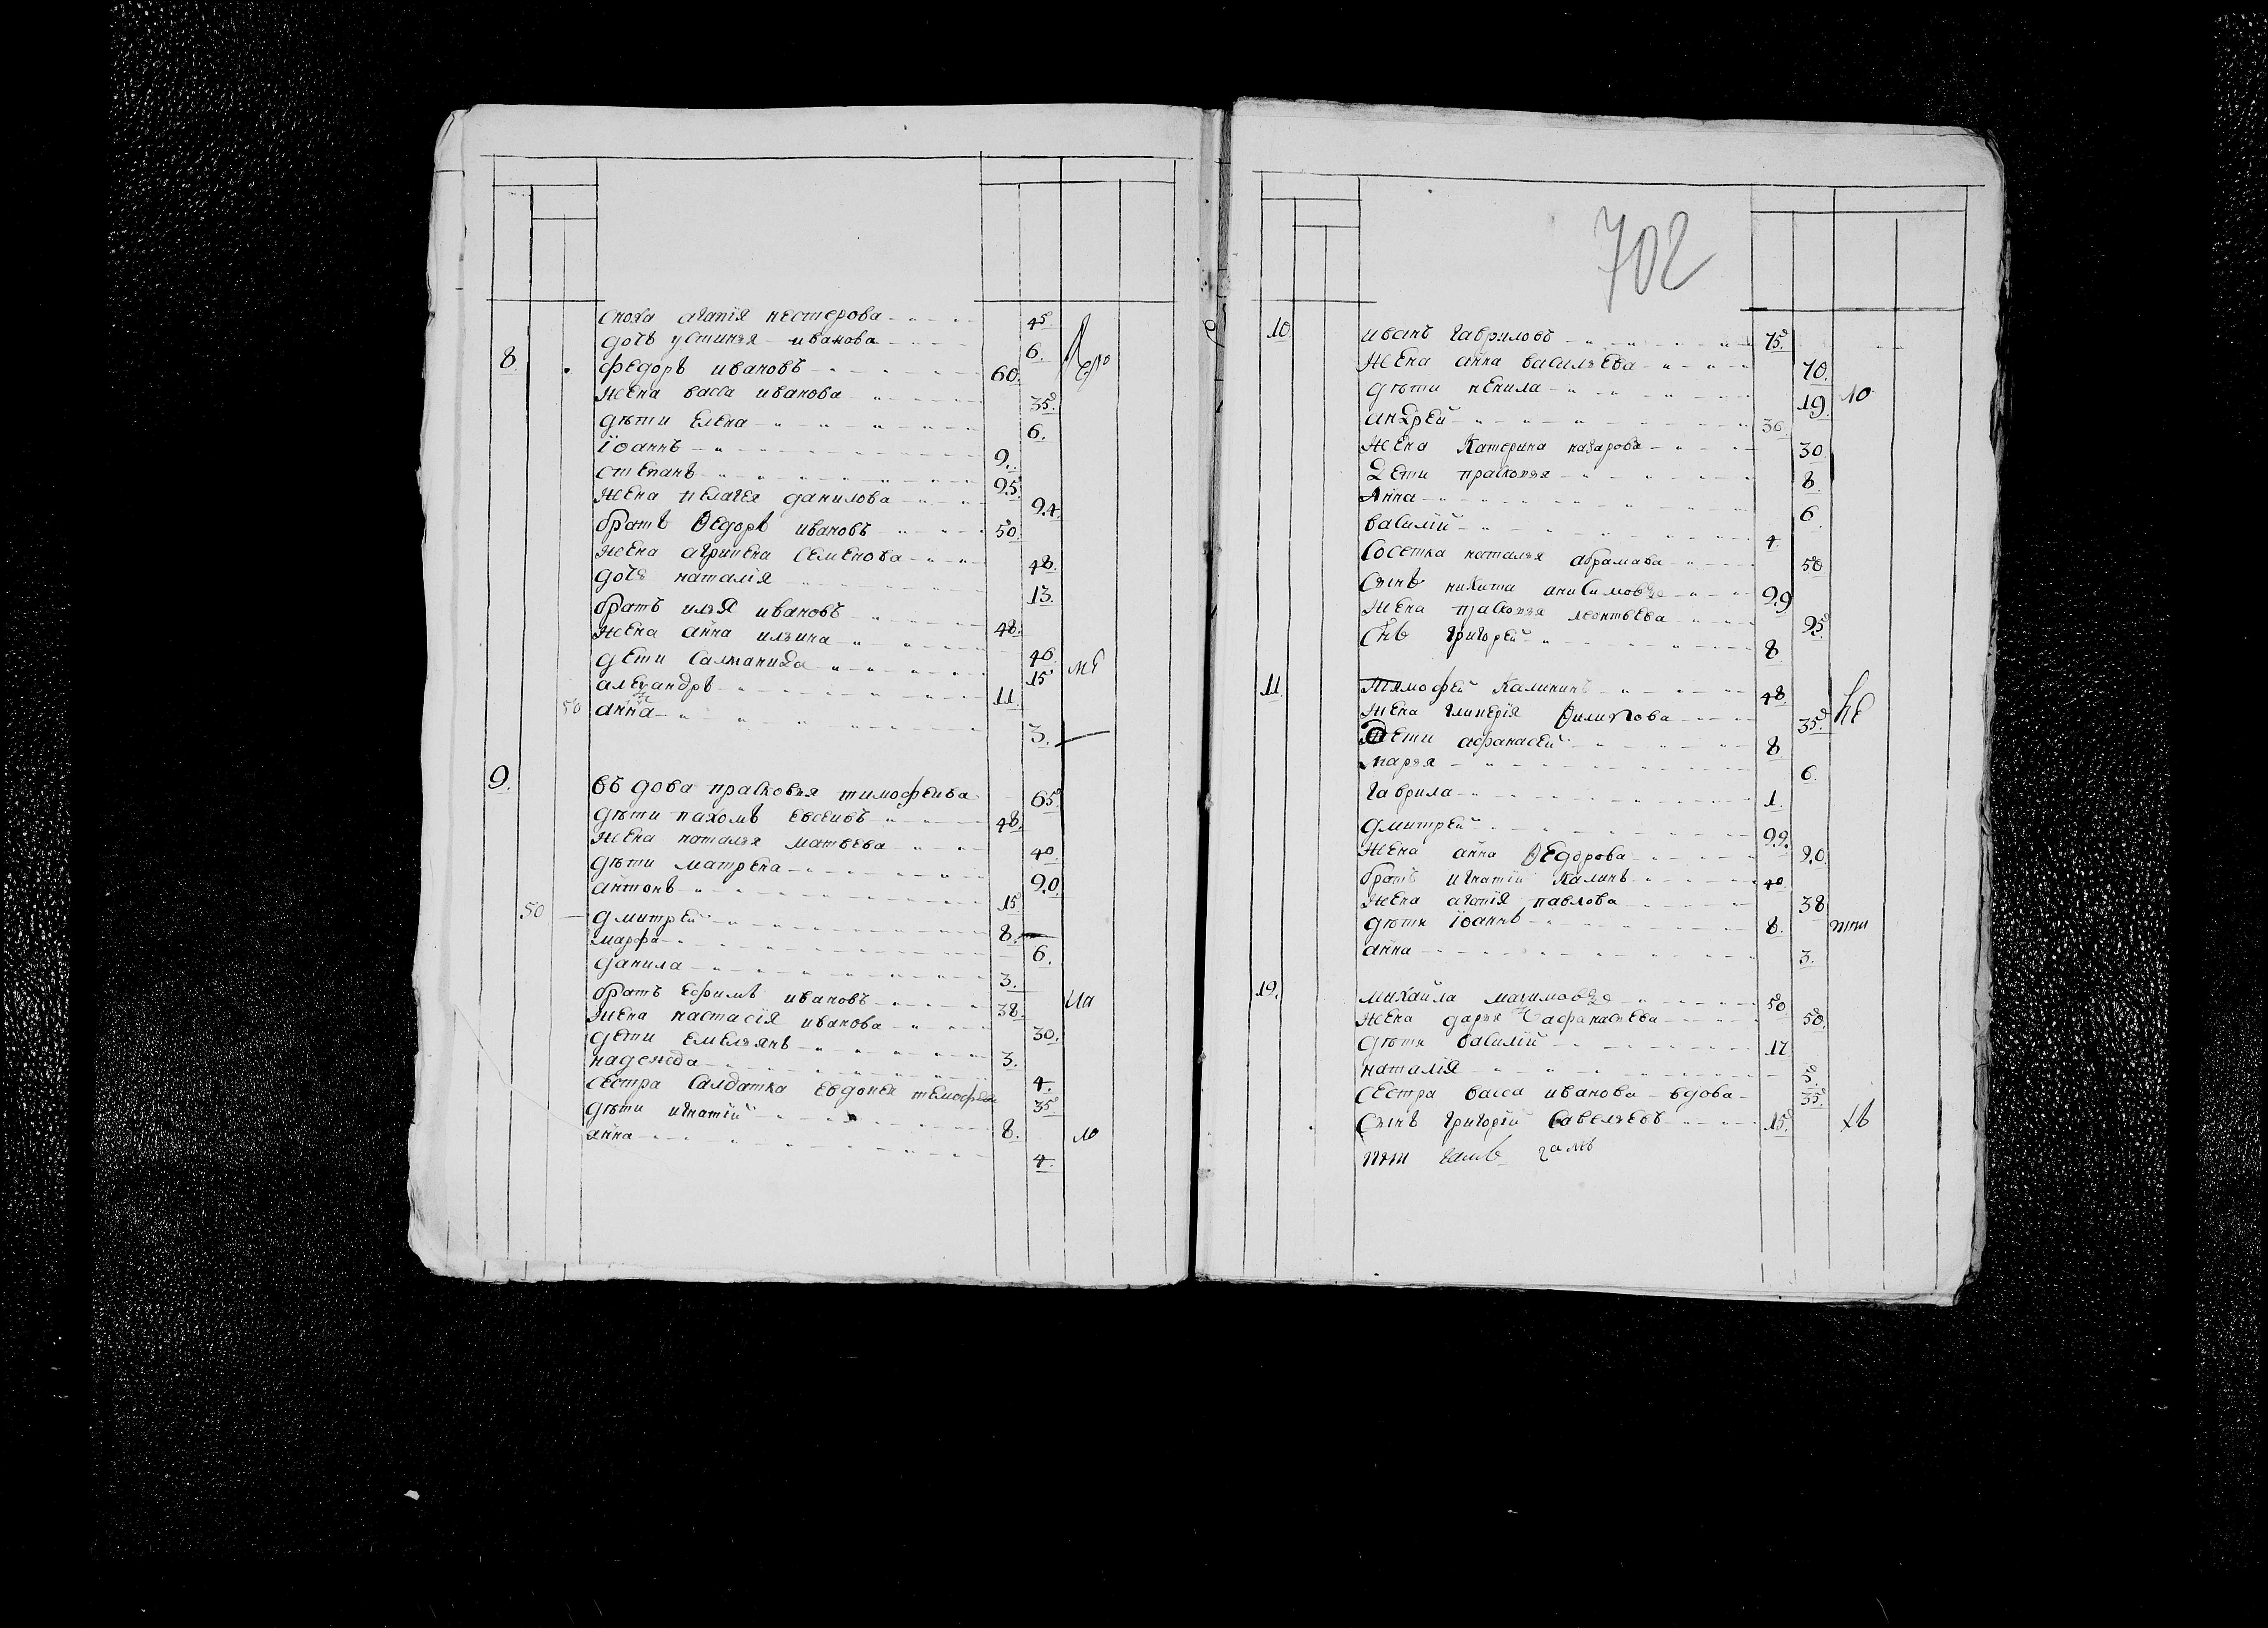 сноха агапїя нестерова 45
дочь устинья иванова 6.
8. федоръ ивановъ 60.
жена васса иванова 35.
дѣти Елена 6.
їоаннъ 9.
степанъ 25
жена пелагея данилова 24.
братъ Ѳедоръ ивановъ 50.
жена агрипена семенова 48.
дочь наталїя 13.
братъ илья ивановъ 48.
жена анна ильина 46
дети саламанида 15
александръ 11.
50 анна 3.
9. въ дова прасковья тимофеива 65.
дѣти пахомъ евсеивъ 48.
жена наталья матвеева 40.
дѣти матрена 20
антонъ 15
50 дмитреи 8.
марфа 6.
данила 3.
братъ ефимъ ивановъ 38.
жена настасїя иванова 30.
дети емельянъ 3.
надежда 4.
сестра салдатка евдокея тимофеи 35
дѣти игнатїи 8.
анна 4.
702
10 иванъ гавриловъ 75.
жена анна васильева 70.
дѣти ненила 19. 10
андреи 36
жена Катерина назарова 30.
дети прасковья 8.
Анна 6.
василїи 4
сосетка наталья абрамава 50
сынъ никита анисимовъ 29
жена прасковья леонтьева 25.
снъ григореи 8
11. тимофеи Калининъ 48
жена гликерїя Ѳилипова 35.
дети афанасеи 8
марья 6.
гаврила 1.
дмитреи 22.
жена анна Ѳедорова 20.
братъ игнатїи Калинъ 40
жена агапїя павлова 38
дѣти їоаннъ 8.
анна 3.
12. михаила 50
жена дарья афанасьева 50.
дѣти василїи 17
наталїя 5.
сестра васса иванова вдова 35.
сынъ григорїи савельевъ 15.